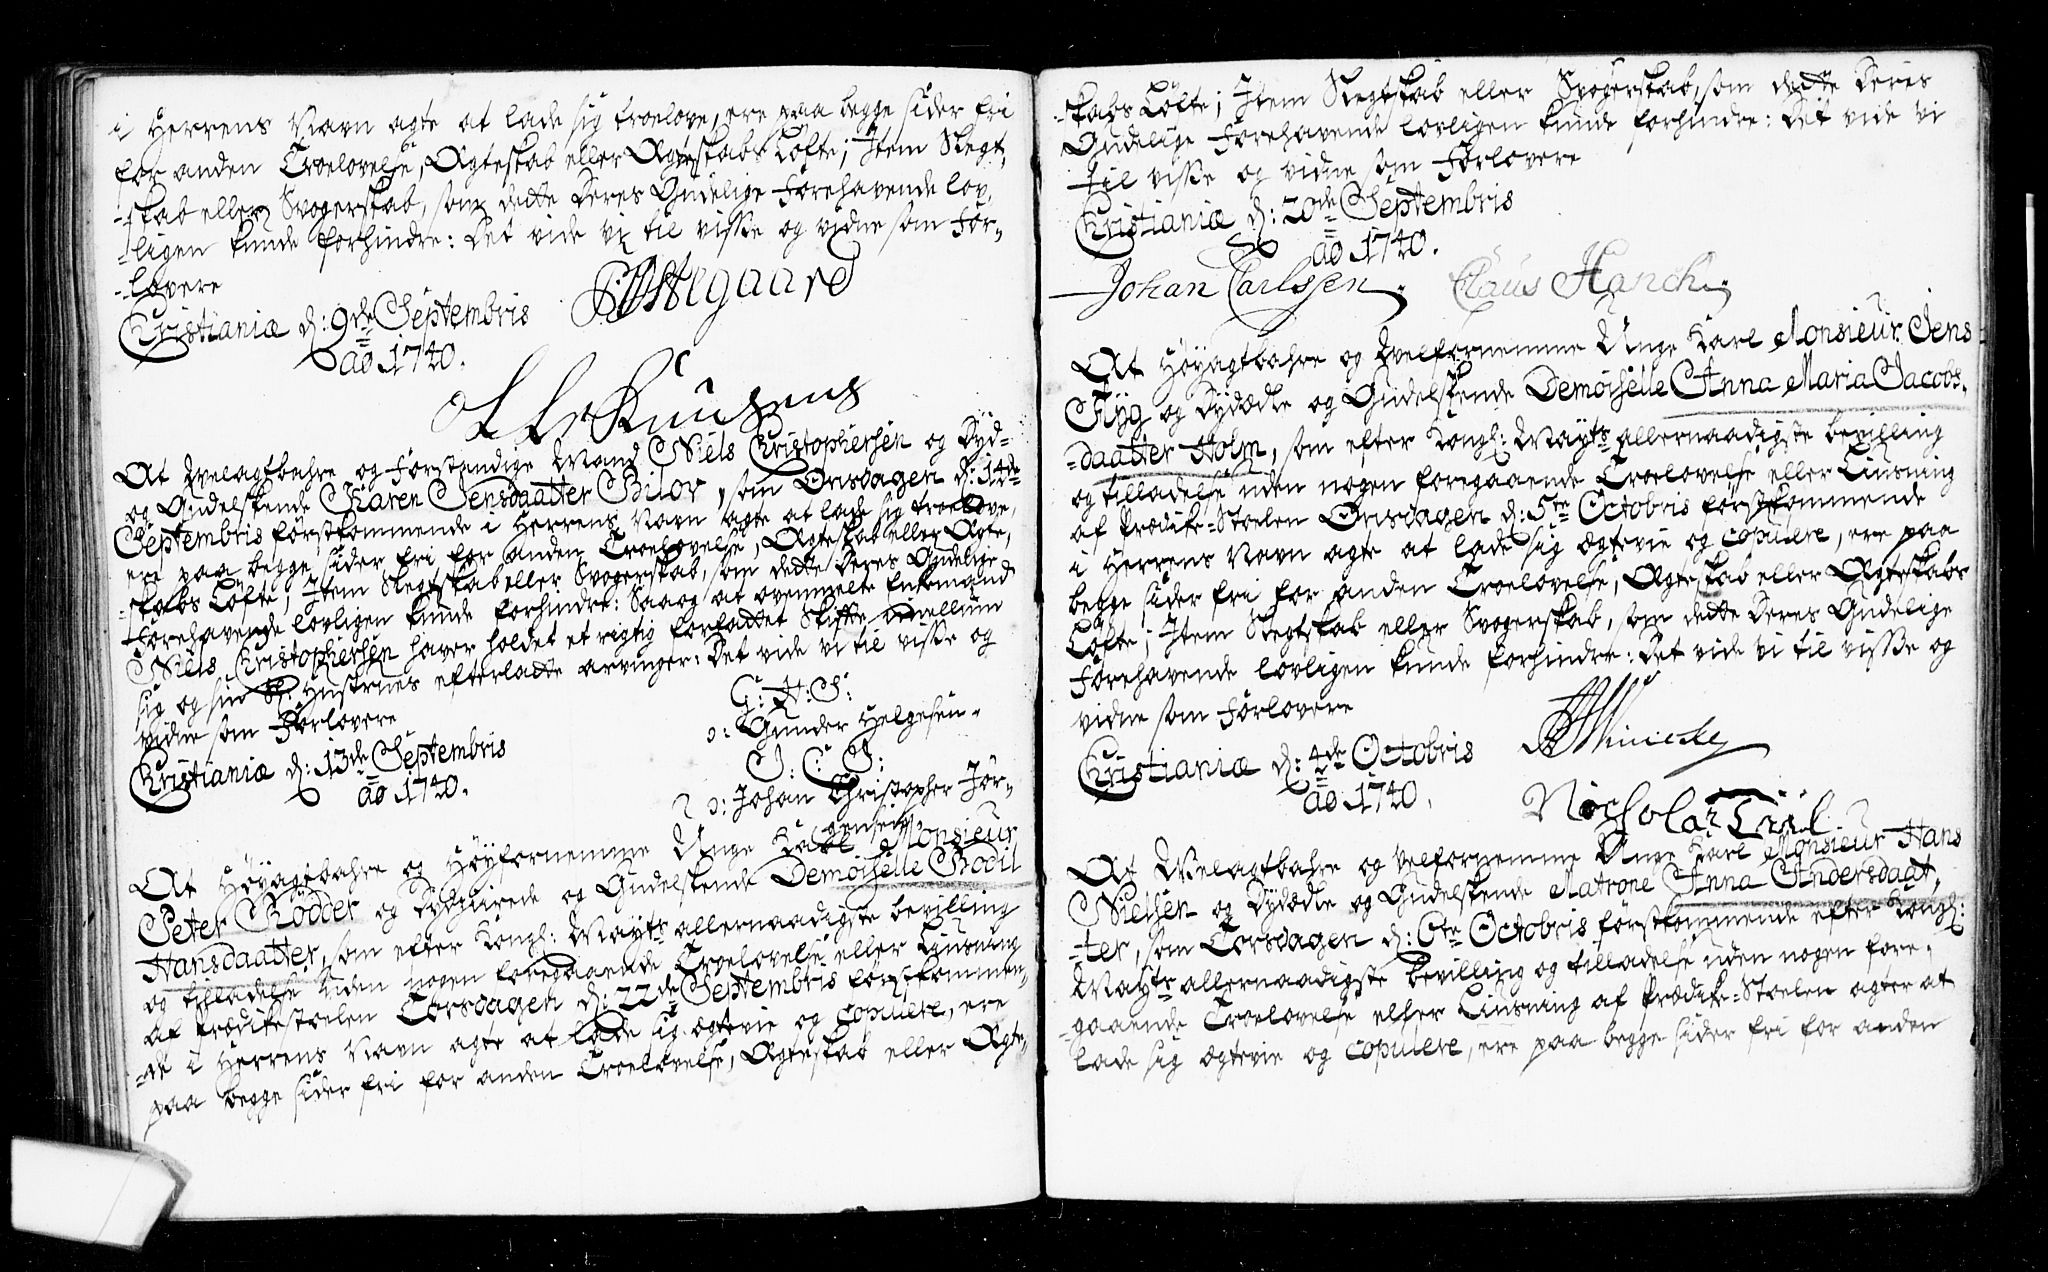 i Herrens Navn agte at lade sig troelove, ere paa begge sider fri
for anden Troelovelse, Ægteskab eller Ægteskabs Løfte; Item Slegt-
-skab eller Svogerskab, som dette deres Gudelige Forehavende lov-
-ligen kunde forhindre: Det vide vi til visse og vidne som For-
-lovere
Christianiæ d: 9de Septembris
ao 1740.
Ostegaard
Knudsens
At Velagtbahre og Forstandige Mand Niels Christophersen og Dyd-
og Gudelskende Karen Jensdaatter Bilov, som Onsdagen d: 14de
Septembris førstkommende i Herrens Navn agte at lade sig troelove,
ere paa begge sider fri for anden Troelovelse, Ægteskab eller Ægte-
-skabs Løfte; Item Slegtskab eller Svogerskab, som dette deres Gudelige
Forehavende lovligen kunde forhindre: Saa og at ovenmelte Enkemand
Niels Christophersen haver holdet et rigtig forfattet Skifte imellum
sig og sin Sl: Hustrues efterladte arvinger: Det vide vi til visse og
vidne som Forlovere
G: H: S:
ɔ: Gunder Helgesen.
Christianiæ d: 13de Septembris
ao 1740.
J: C: J:
ɔ: Johan Christopher Jør-
gensen.
At Høyagtbahre og Høyfornemme Unge Karl Monsieur
Peter Rödder og Dydziirede og Gudelskende Demoiselle Bodil
Hansdaatter, som efter Kongl: Mayts allernaadigste bevilling
og tilladelse uden nogen foregaaende Troelovelse eller Liusning
af Prædikestoelen Torsdagen d: 22de Septembris førstkommen-
-de i Herrens Navn agte at lade sig ægtevie og copulere, ere
paa begge sider fri for anden Troelovelse, Ægteskab eller Ægte-
-skabs Løfte; Item Slegtskab eller Svogerskab, som dette deres
Gudelige Forehavende lovligen kunde forhindre: Det vide vi
til visse og vidne som Forlovere
Christianiæ d: 20de Septembris
ao 1740.
Johan Carlssen. Claus Hanch.
At Høyagtbahre og Velfornemme Unge Karl Monsieur Jens
Fyg og Dydædle og Gudelskende Demoiselle Anna Maria Jacobs-
-daatter Holm, som efter Kongl: Mayts allernaadigste bevilling
og tilladelse uden nogen foregaaende Troelovelse eller Liusning
af Prædike-Stoelen Onsdagen d: 5te Octobris førstkommende
i Herrens Navn agte at lade sig ægtevie og copulere, ere paa
begge sider fri for anden Troelovelse, Ægteskab eller Ægteskabs
Løfte; Item Slegtskab eller Svogerskab, som dette deres Gudelige
Forehavende lovligen kunde forhindre: Det vide vi til visse og
vidne som Forlovere
Christianiæ d: 4de Octobris
ao 1740.
At Velagtbahre og Velfornemme Unge Karl Monsieur Hans
Nielsen og Dydædle og Gudelskende Matrone Anna Andersdaat-
-ter, som Torsdagen d: 6te Octobris førstkommende efter Kongl:
Mayts allernaadigste bevilling og tilladelse uden nogen fore-
-gaaende Troelovelse eller Liusning af Prædike-Stoelen agter at
lade sig ægtevie og copulere, ere paa begge sider fri for anden